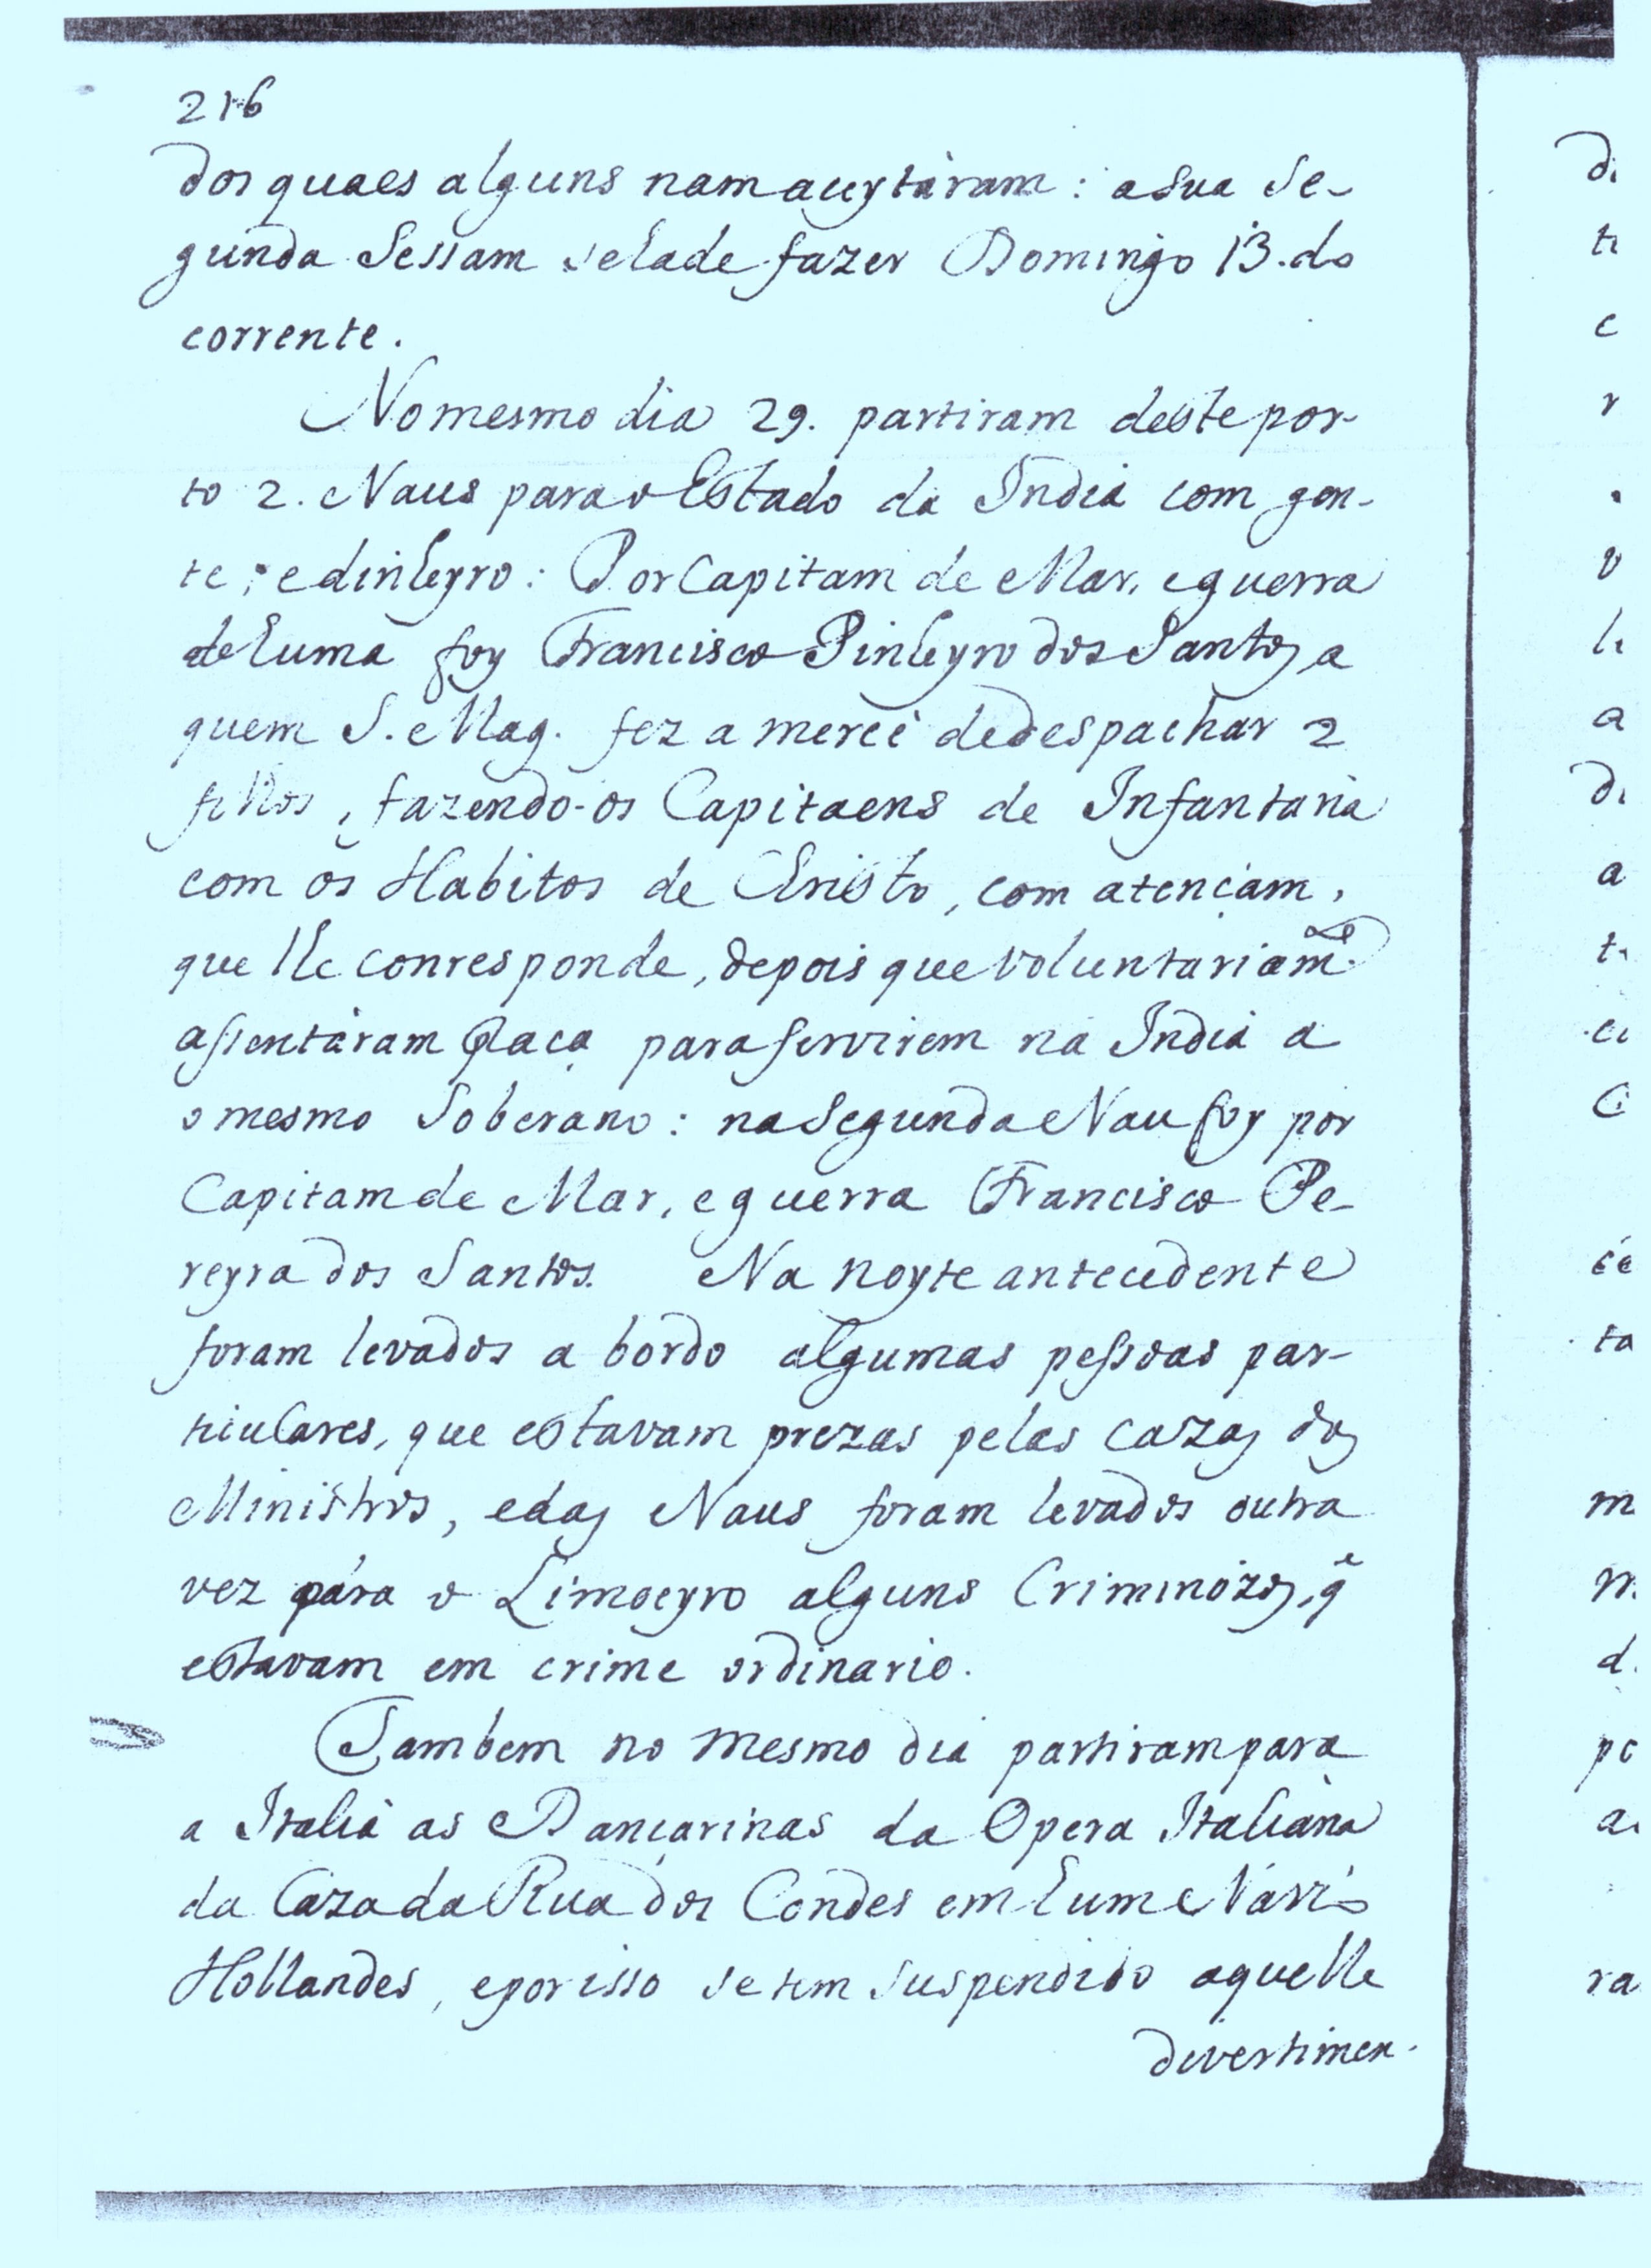 216
dos quaes alguns nam aceytàram: a sua Se-
gunda Sessam se hade fazer Domingo 13. do
corrente.
No mesmo dia 29. partiram deste por-
to 2. Naus para o Estado da India com gen-
te, e dinheyro: Por Capitam de Mar, e guerra
de huma foy Francisco Pinheyro dos Santos a
quem S. Mag. fez a mercê de despachar 2
filhos, fazendo-os Capitaens de Infantaria
com os Habitos de Christo, com atençam,
que lhe conresponde, depois que voluntariam.te
assentàram praça para servirem na India a
o mesmo Soberano: na Segunda Nau foy por
Capitam de Mar, e guerra Francisco Pe-
reyra dos Santos. Na noyte antecedente
foram levados a bordo algumas pessoas par-
ticulares, que estavam prezas pelas cazas dos
Ministros, e das Naus foram levados outra
vez pára o Limoeyro alguns Criminózos, q̃
estavam em crime ordinario.
Tambem no mesmo dia partiram para
a Italia as Dançarinas da Opera Italiana
da Caza da Rua dos Condes em hum Navio
Hollandes, e por isso se tem suspendido aquelle
divertimen-
di
ti
c
r
v
a
di
a
ci
C
cé
ta
m
d.
po
ra